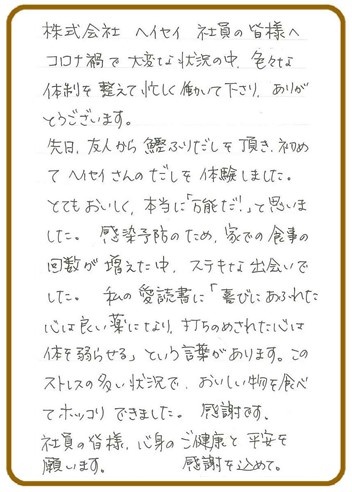 株式会社 ヘイセイ 社員の皆様へ
コロナ禍で大変な状況の中、色々な
体制を整えて忙しく働いて下さり、ありが
とうございます。
先日、友人から 鰹ふりだしを頂き、初め
てヘイセイさんのだしを体験しました。
とてもおいしく、本当に「万能だ!」と思いま
した。 感染予防のため、家での食事の
回数が 増えた中、ステキな出会いで
した。 私の愛読書に「喜びにあふれた
心は良い薬になり、打ちのめされた心は
体を弱らせる」という言葉があります。この
ストレスの多い状況で、おいしい物を食べ
てホッコリ できました。 感謝です。
社員の皆様、心身のご健康と平安を
願います。 感謝を込めて。